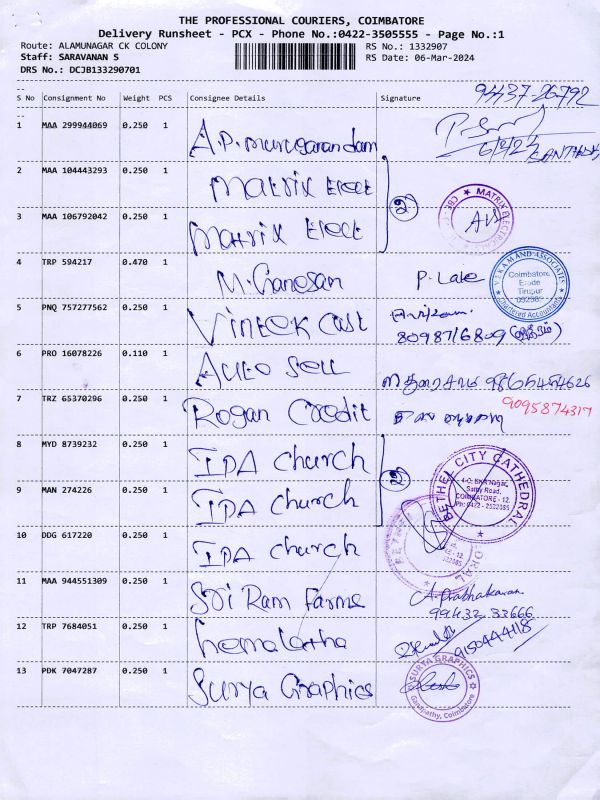 THE PROFESSIONAL COURIERS, COIMBATORE
Delivery Runsheet - PCX - Phone No.:0422-3505555 - Page No.:1
Route: ALAMUNAGAR CK COLONY RS No.: 1332907
Staff: SARAVANAN S RS Date: 06-Mar-2024
DRS No.: DCJB133290701
S No Consignment No Weight PCS Consignee Details Signature
94437-26792
1 MAA 299944069 0.250 1 A.P. muruganandam
2 MAA 104443293 0.250 1 Matrix Elect
②
3 MAA 106792042 0.250 1 Matrix Elect
★ MATRIX ELECTRICAL
4 TRP 594217 0.470 1 M. Ganesan P. Lake
Coimbatore
Erode
Tirupur
Chartered Accountants
5 PNQ 757277562 0.250 1 Vintek Cast
8098716809
6 PRO 16078226 0.110 1 Auto Sell
9865454626
7 TRZ 65370296 0.250 1 Rogan Credit
9095874317
8 MYD 8739232 0.250 1 IPA Church
②
9 MAN 274226 0.250 1 IPA Church
BETHEL CITY CATHEDRAL
Sathy Road,
COIMBATORE - 12.
Ph: 0422 - 2522085
10 DDG 617220 0.250 1 IPA Church
11 MAA 944551309 0.250 1 Sri Ram Farms
A. Prabhakaran
99432 33666
12 TRP 7684051 0.250 1 hemalatha
9150444118
13 PDK 7047287 0.250 1 Surya Graphics
SURYA GRAPHICS
Ganapathy, Coimbatore